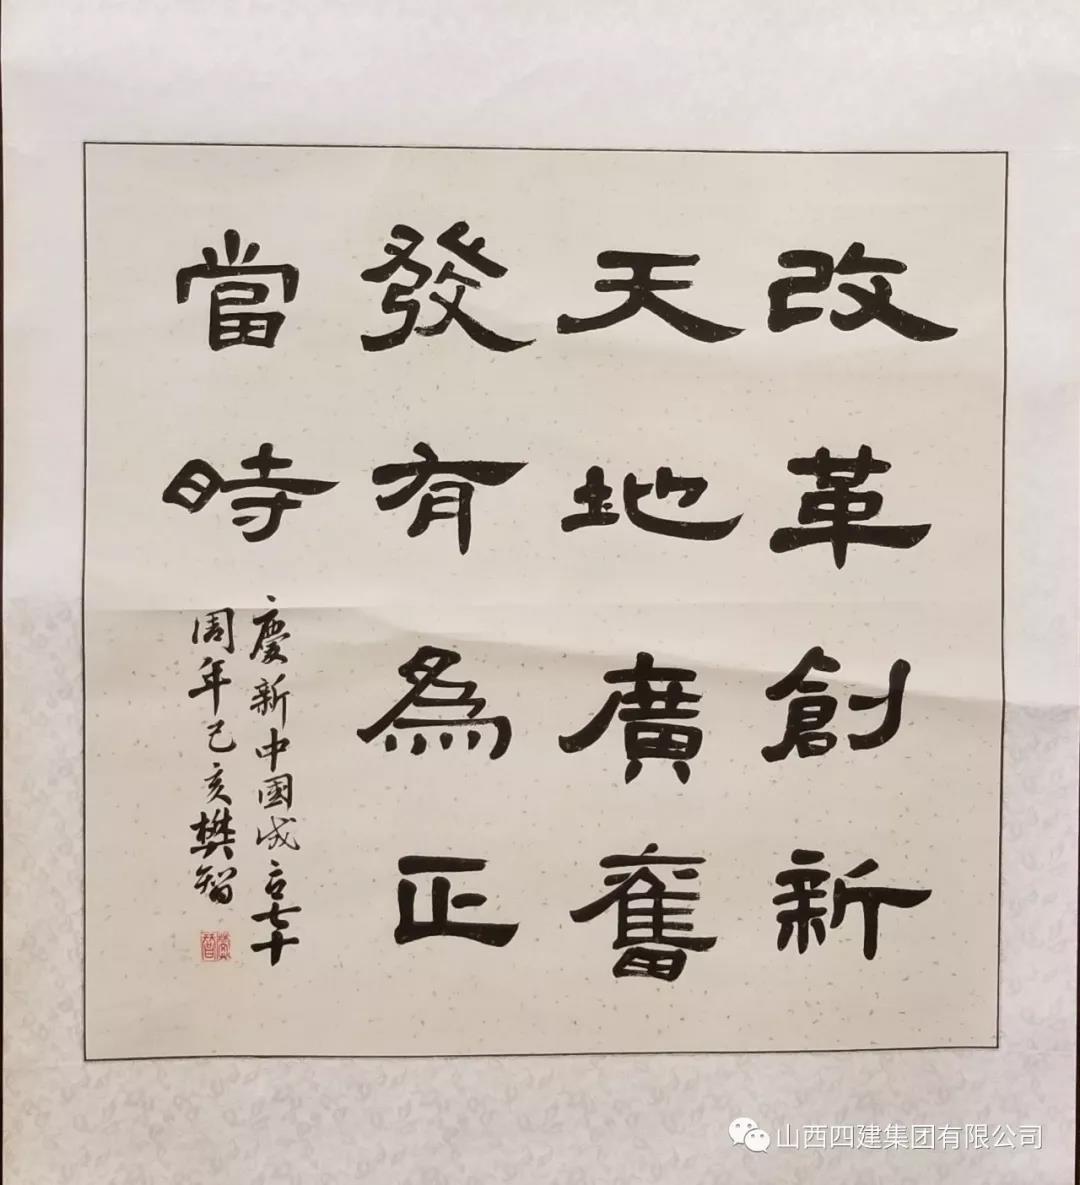 改革創新
天地廣奮
發有為正
當時
慶新中國成立七十
周年己亥樊智
山西四建集团有限公司